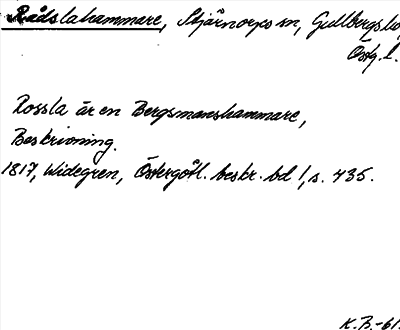 Rådslahammare, Stjärnorps sn, Gullbergsbo,
Östg. l.
Rossla är en Bergsmanshammare,
Beskrivning.
1817, Widegren, Östergötl. beskr. bd 1, s. 435.
K.B.-61.